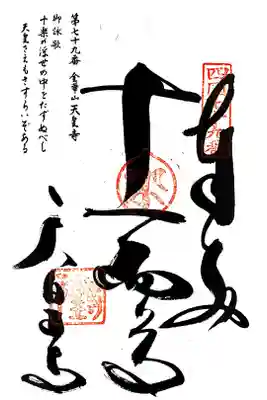 四国第七十九番
奉納
十一面尊
天皇寺
第七十九番 金華山 天皇寺
御詠歌
十楽の浮世の中をたずぬべし
天皇さえもさすらいぞある